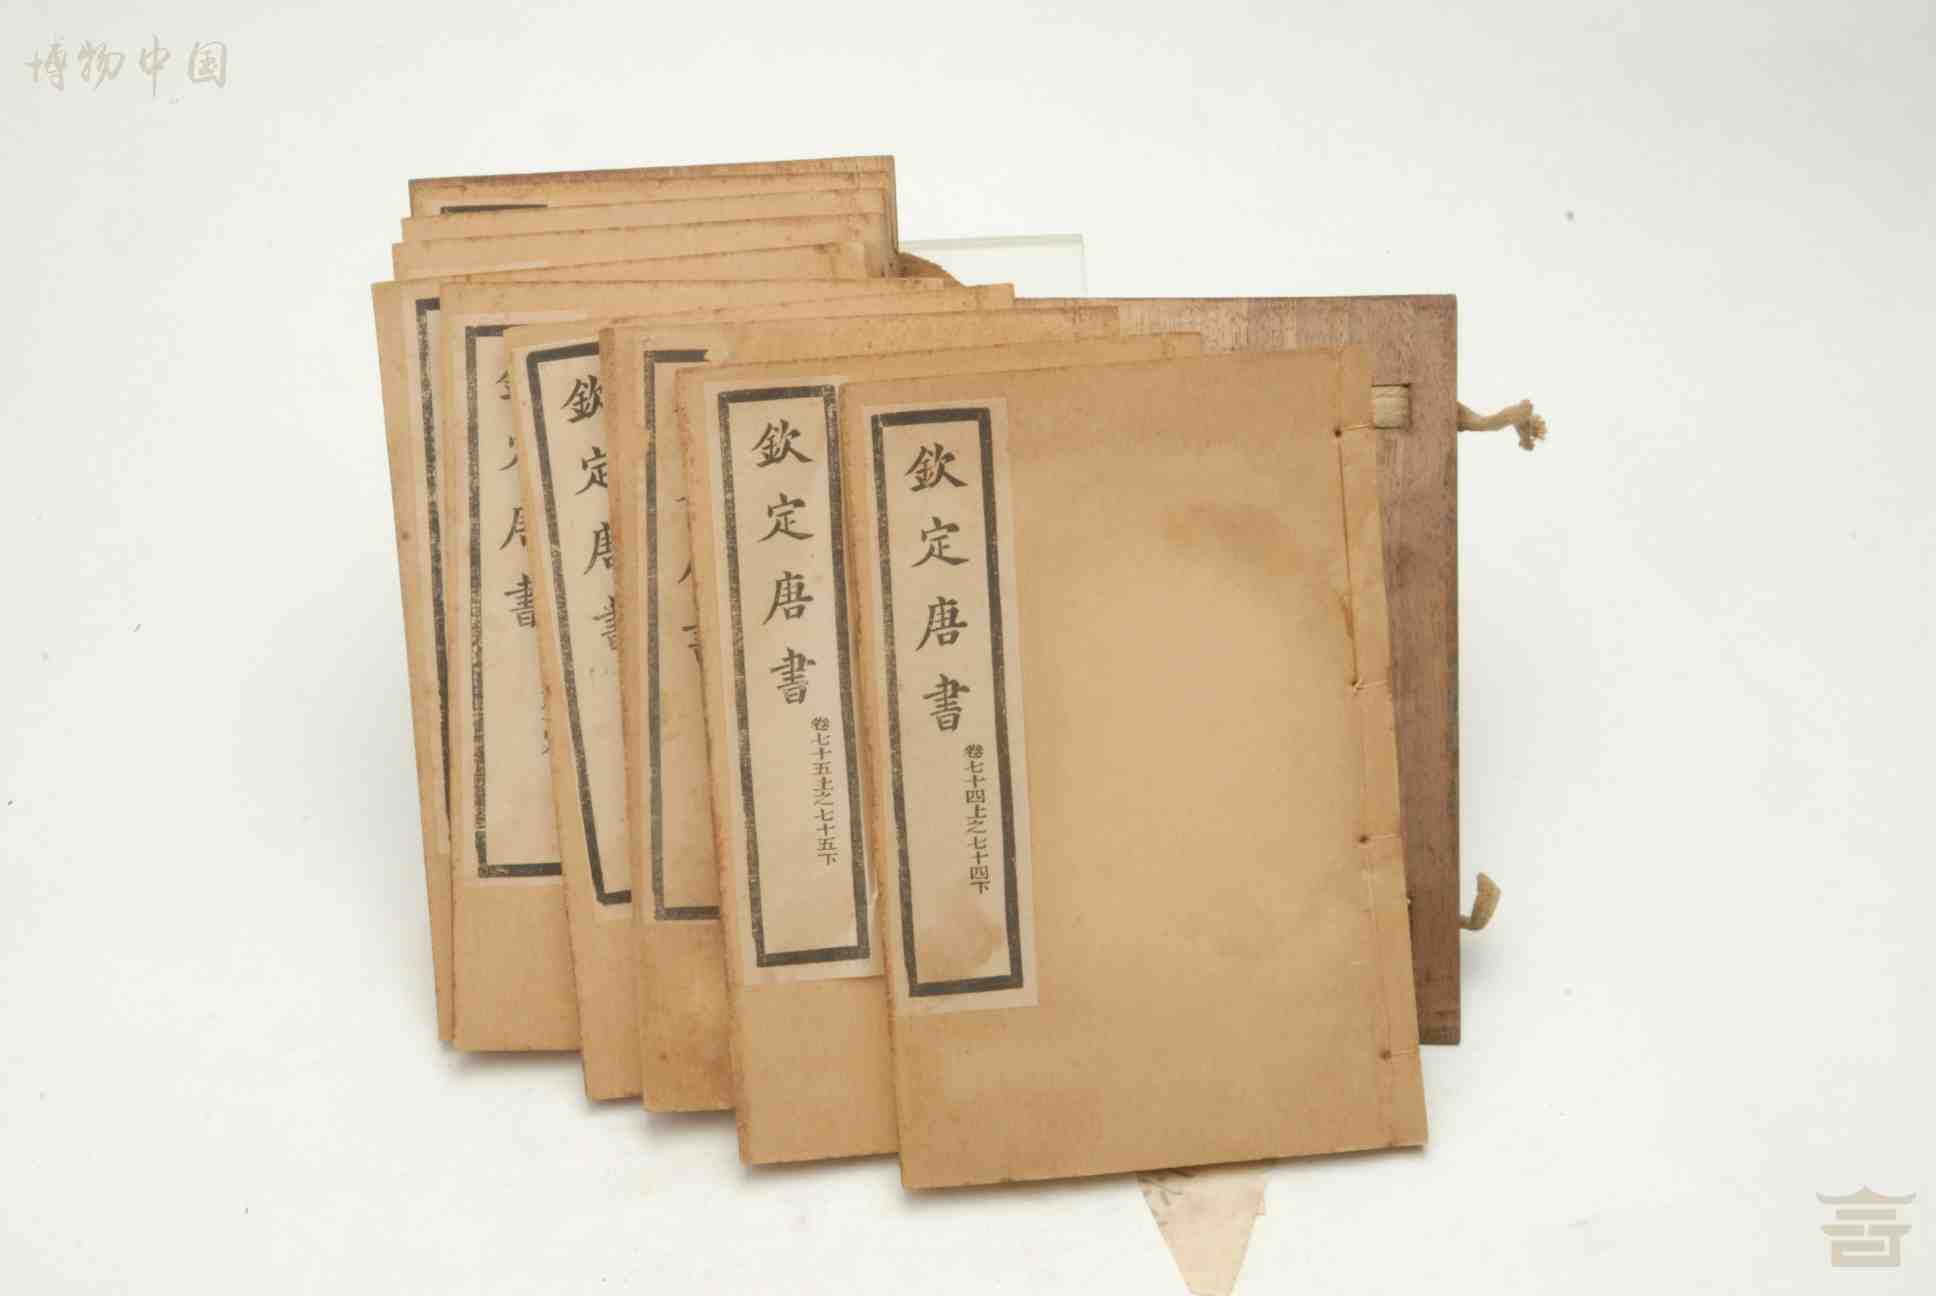 博物中国
欽定唐書
卷七十四上之七十四下
欽定唐書
卷七十五上之七十五下
欽定唐書
唐書